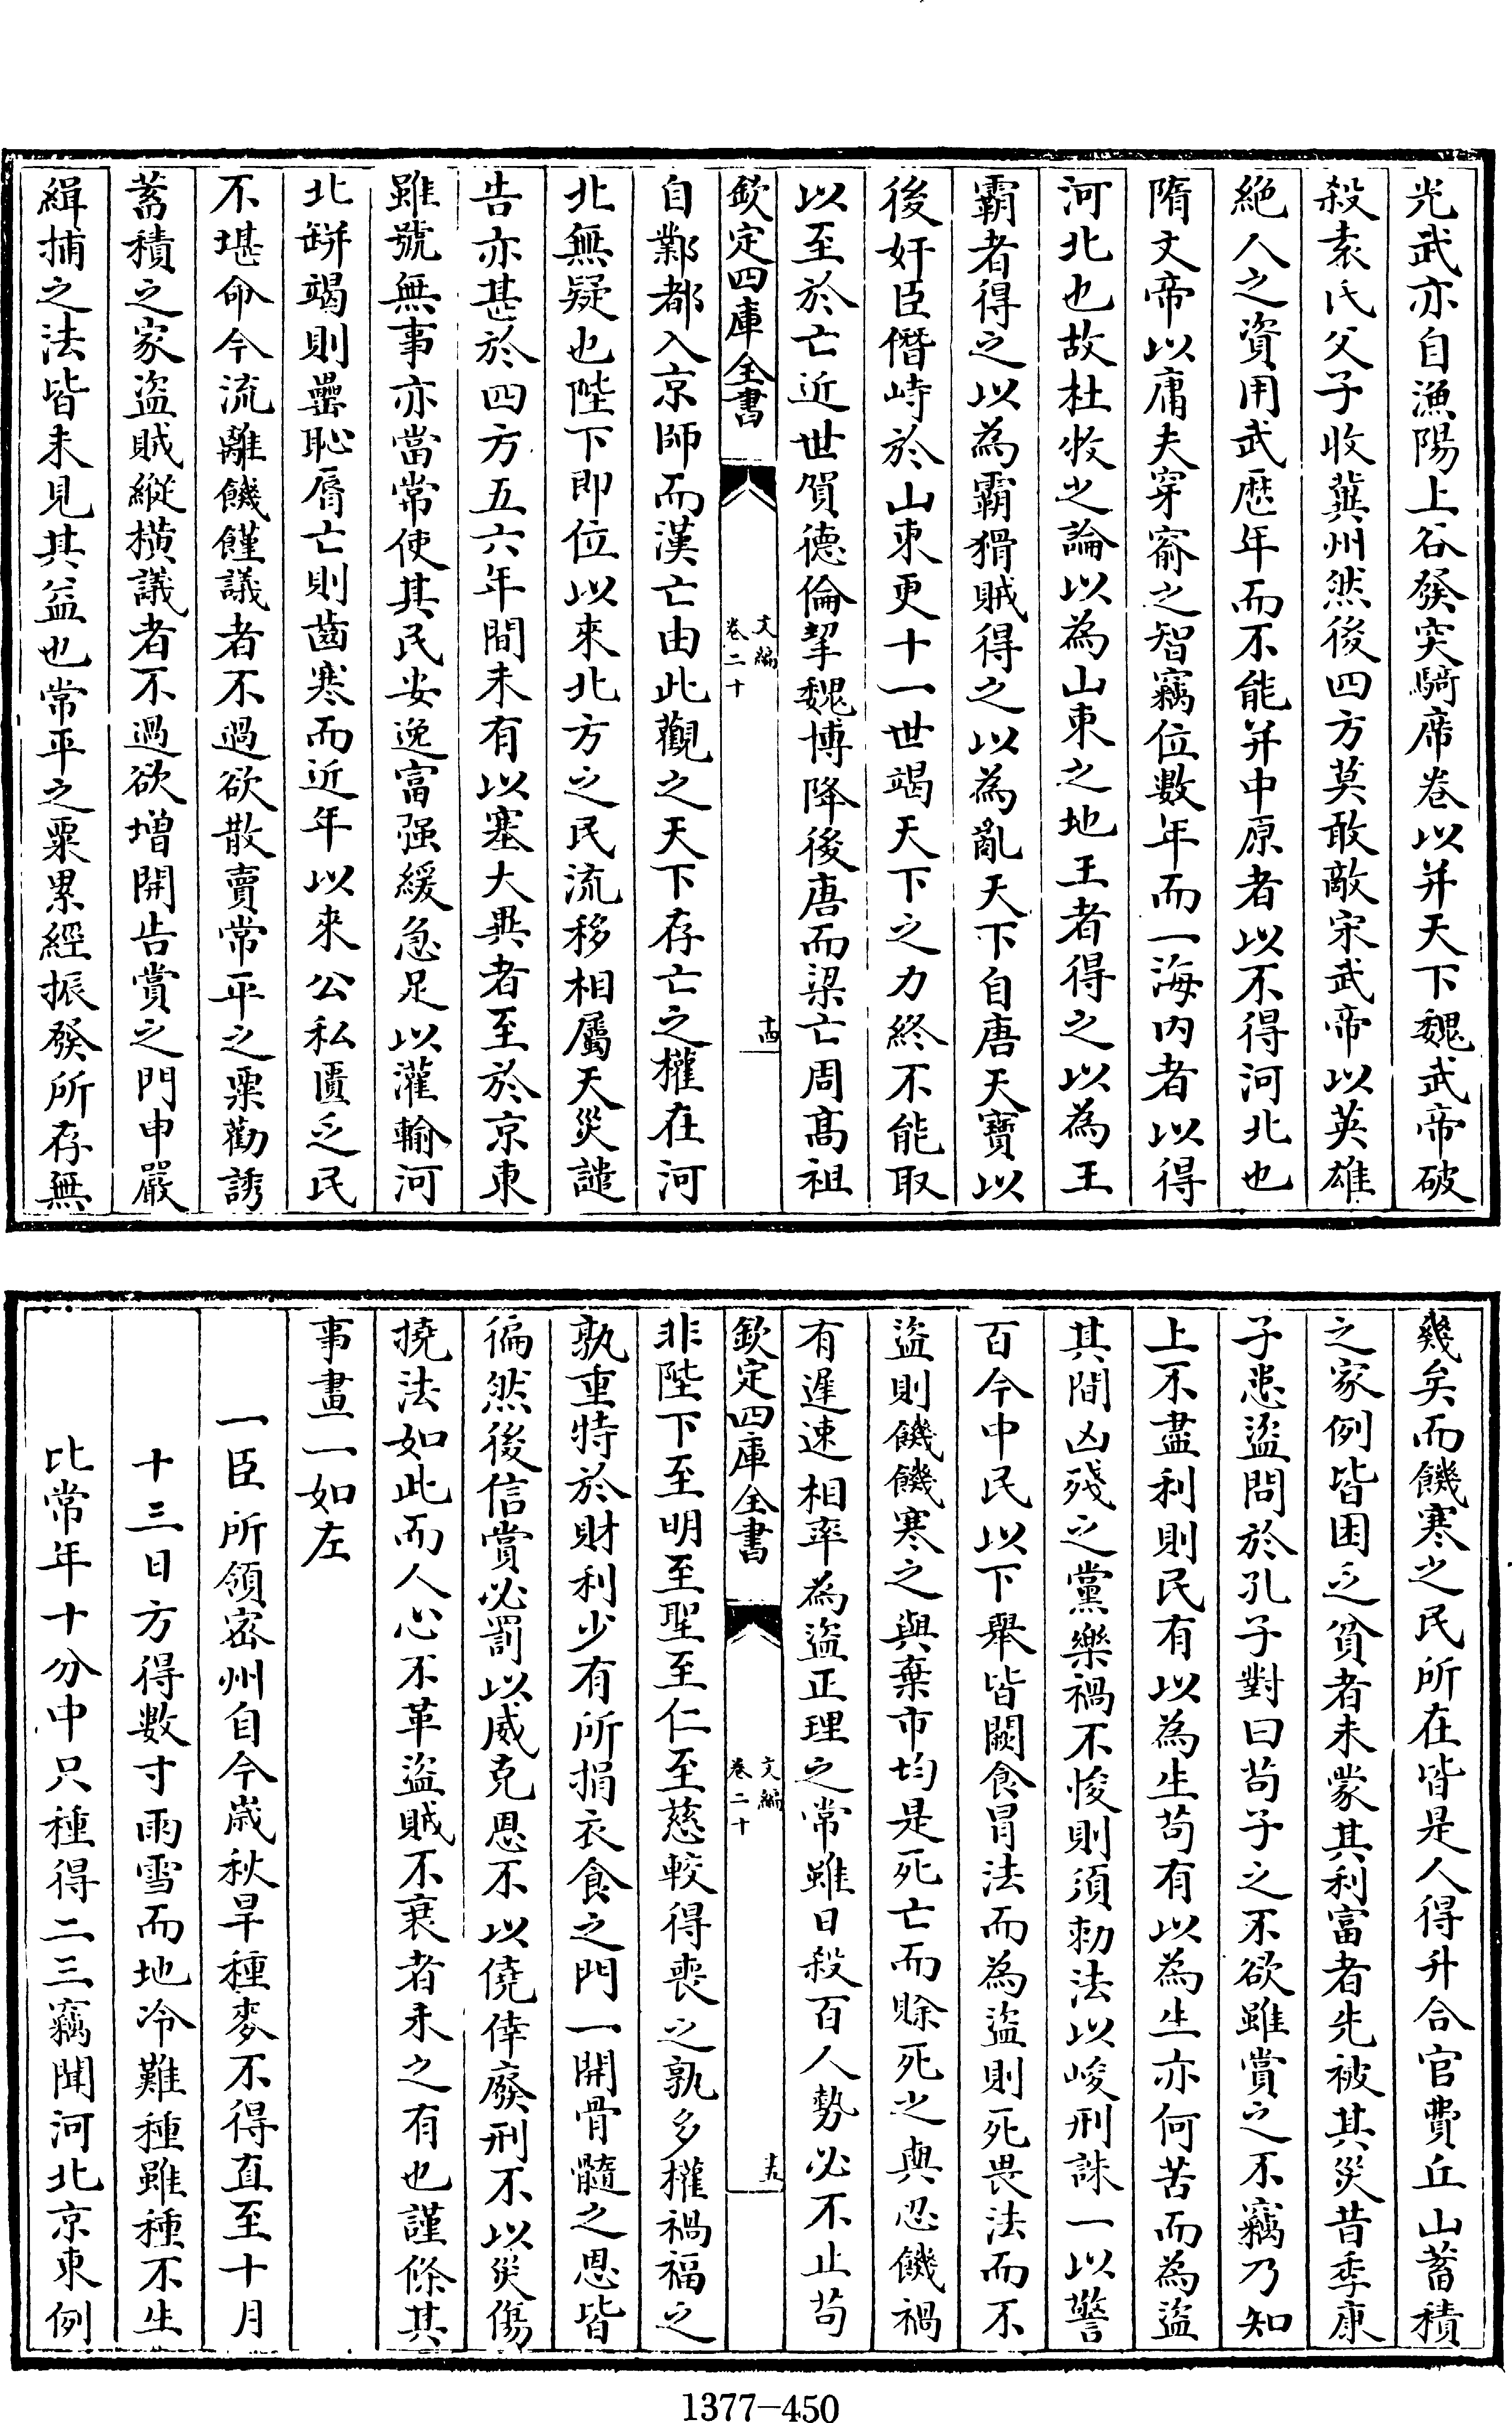 光武亦自漁陽上谷發突騎席卷以并天下魏武帝破
殺袁氏父子收冀州然後四方莫敢敵宋武帝以英雄
絶人之資用武歴年而不能并中原者以不得河北也
隋文帝以庸夫穿窬之智竊位數年而一海内者以得
河北也故杜牧之論以為山東之地王者得之以為王
霸者得之以為霸猾賊得之以為亂天下自唐天寶以
後奸臣僭峙於山東更十一世竭天下之力終不能取
以至於亡近世賀德倫挈魏博降後唐而梁亡周髙祖
欽定四庫全書
文編
卷二十
十四
自鄴都入京師而漢亡由此觀之天下存亡之權在河
北無疑也陛下即位以來北方之民流移相屬天災譴
告亦甚於四方五六年間未有以塞大異者至於京東
雖號無事亦當常使其民安逸富强緩急足以灌輸河
北缾竭則罍恥脣亡則齒寒而近年以來公私匱乏民
不堪命今流離饑饉議者不過欲散賣常平之粟勸誘
蓄積之家盜賊縱横議者不過欲增開告賞之門申嚴
緝捕之法皆未見其益也常平之粟累經振發所存無
幾矣而饑寒之民所在皆是人得升合官費丘山蓄積
之家例皆困乏貧者未蒙其利富者先被其災昔季康
子患盜問於孔子對曰苟子之不欲雖賞之不竊乃知
上不盡利則民有以為生苟有以為生亦何苦而為盜
其間凶殘之黨樂禍不悛則須勅法以峻刑誅一以警
百今中民以下舉皆闕食冒法而為盜則死畏法而不
盜則饑饑寒之與棄市均是死亡而賖死之與忍饑禍
有遲速相率為盜正理之常雖日殺百人勢必不止苟
欽定四庫全書
文編
卷二十
十五
非陛下至明至聖至仁至慈較得喪之孰多權禍福之
孰重特於財利少有所捐衣食之門一開骨髓之恩皆
徧然後信賞必罰以威克恩不以僥倖廢刑不以災傷
撓法如此而人心不革盜賊不衰者未之有也謹條其
事畫一如左
一臣所領密州自今歳秋旱種麥不得直至十月
十三日方得數寸雨雪而地冷難種雖種不生
比常年十分中只種得二三竊聞河北京東例
1377-450